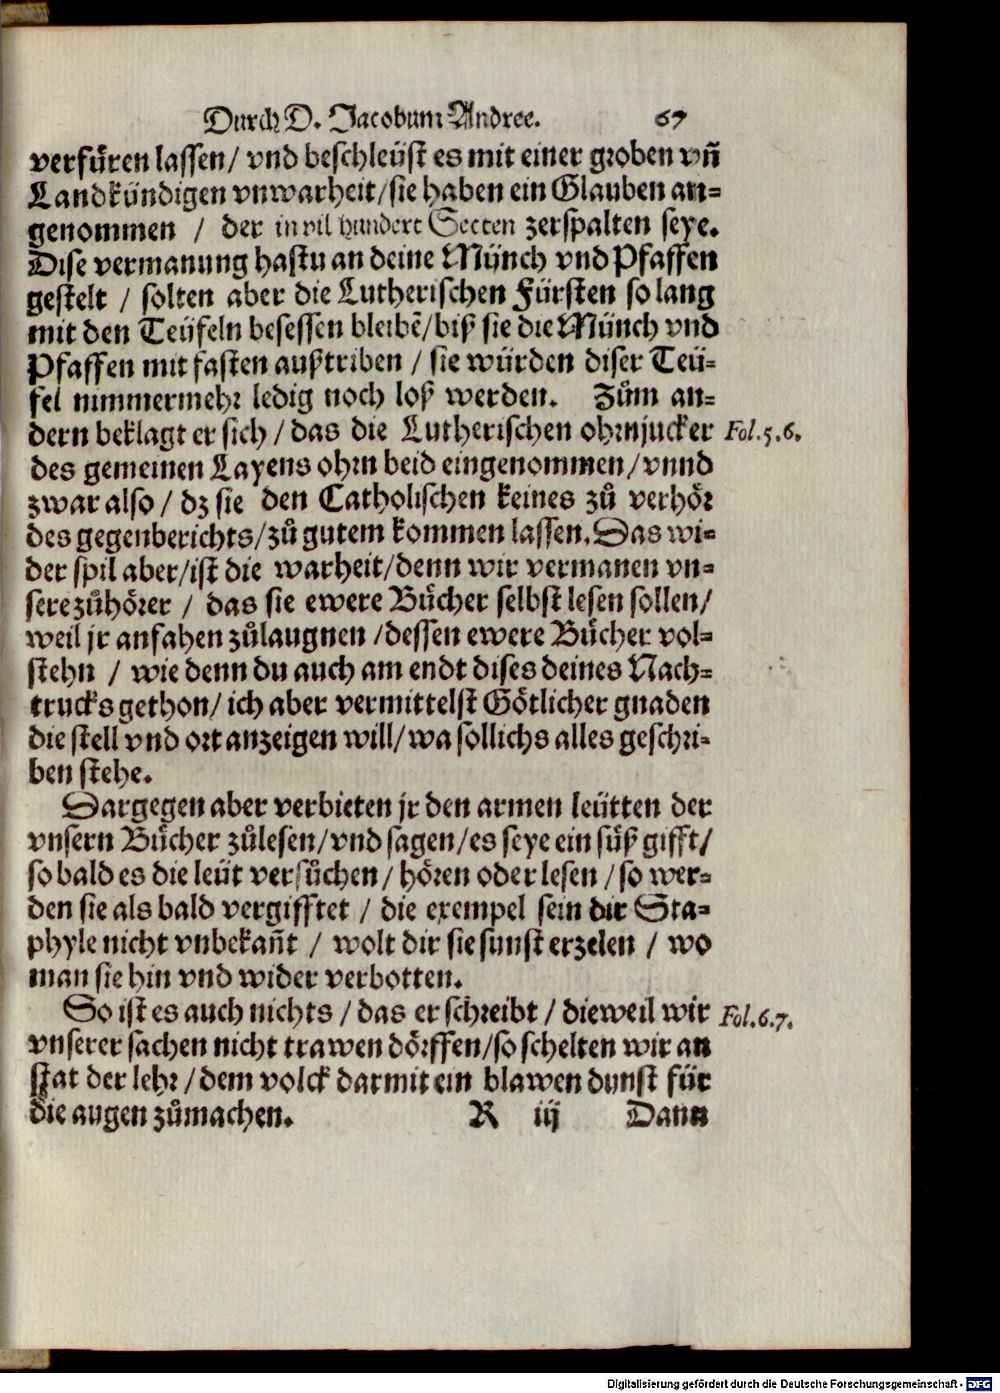 Durch D. Jacobum Andree. 67
verfüren lassen/ vnd beschleüst es mit einer groben vñ
Landkündigen vnwarheit/sie haben ein Glauben an-
genommen / der in vil hundert Secten zerspalten seye.
Dise vermanung hastu an deine Münch vnd Pfaffen
gestelt / solten aber die Lutherischen Fürsten so lang
mit den Teüfeln besessen bleibẽ/biß sie die Münch vnd
Pfaffen mit fasten außtriben / sie würden diser Teü-
fel nimmermehr ledig noch loß werden. Zům an-
dern beklagt er sich / das die Lutherischen ohrnjucker Fol.5.6.
des gemeinen Layens ohrn beid eingenommen/vnnd
zwar also / dz sie den Catholischen keines zů verhör
des gegenberichts/zů gutem kommen lassen. Das wi-
der spil aber/ist die warheit/denn wir vermanen vn-
sere zůhörer / das sie ewere Bücher selbst lesen sollen/
weil jr anfahen zůlaugnen /dessen ewere Bücher vol-
stehn / wie denn du auch am endt dises deines Nach-
trucks gethon/ ich aber vermittelst Götlicher gnaden
die stell vnd ort anzeigen will/wa sollichs alles geschri-
ben stehe.
Dargegen aber verbieten jr den armen leütten der
vnsern Bücher zůlesen/vnd sagen/es seye ein süß gifft/
so bald es die leüt versůchen/ hören oder lesen /so wer-
den sie als bald vergifftet / die exempel sein dir Sta-
phyle nicht vnbekañt / wolt dir sie sunst erzelen / wo
man sie hin vnd wider verbotten.
So ist es auch nichts / das er schreibt / dieweil wir Fol.6.7.
vnserer sachen nicht trawen dörffen/so schelten wir an
stat der lehr /dem volck darmit ein blawen dunst für
die augen zůmachen. R iij Dann
Digitalisierung gefördert durch die Deutsche Forschungsgemeinschaft - DFG